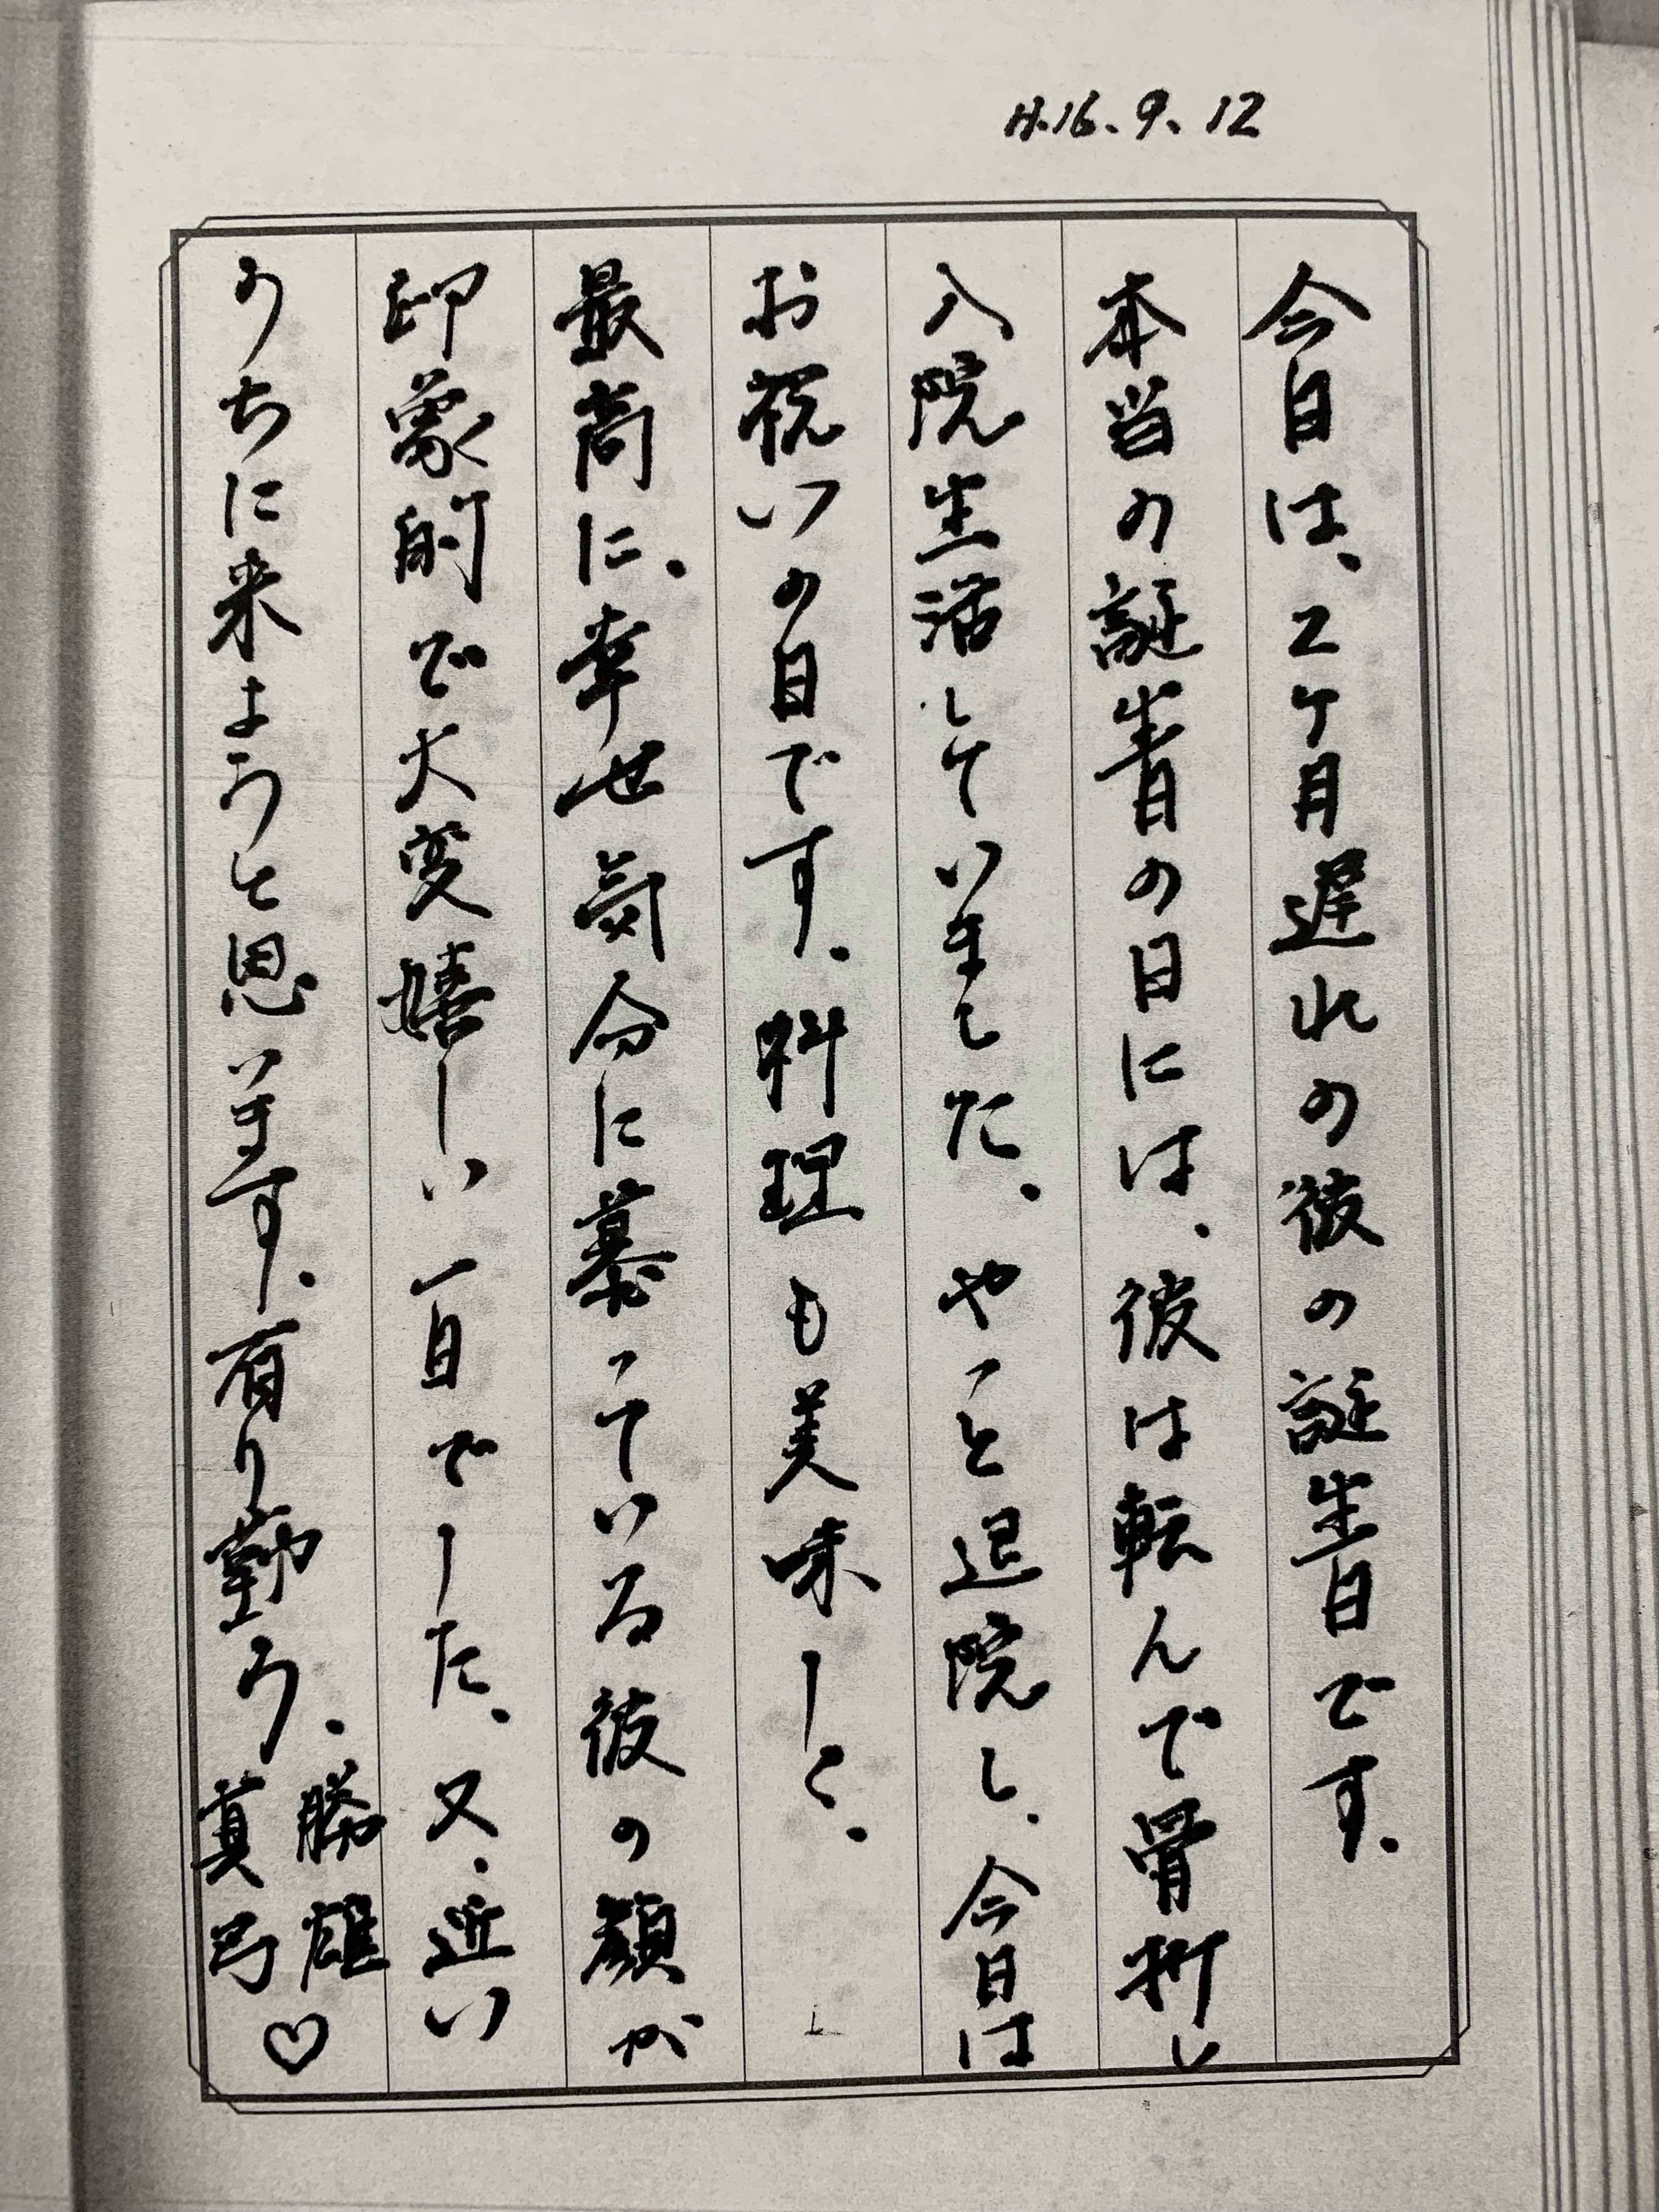 H.16.9.12
今日は、2ヶ月遅れの彼の誕生日です。
本当の誕生日の日には、彼は転んで骨折し
入院生活していました。やっと退院し、今日は
お祝いの日です。料理も美味しく、
最高に、幸せ気分に慕っている彼の顔が
印象的で大変嬉しい一日でした、又、近い
うちに来ようと思います。有り難う。
勝雄
真弓♡